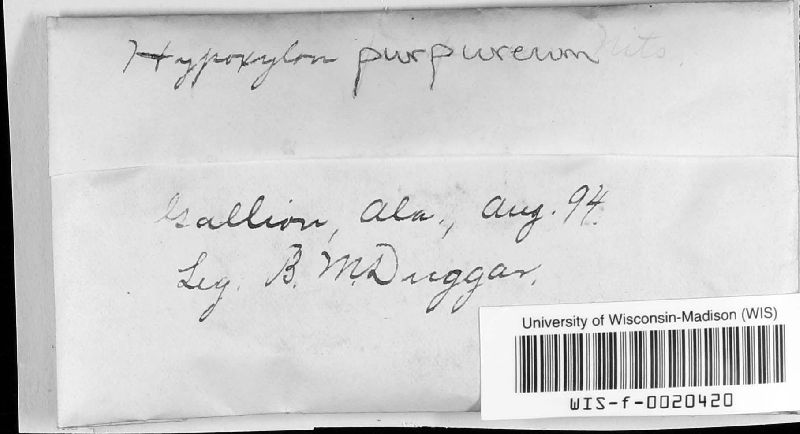 Hypoxylon purpureum Nits.
Gallion, Ala., Aug. 94.
Leg. B. M. Duggar.
University of Wisconsin-Madison (WIS)
WIS-f-0020420